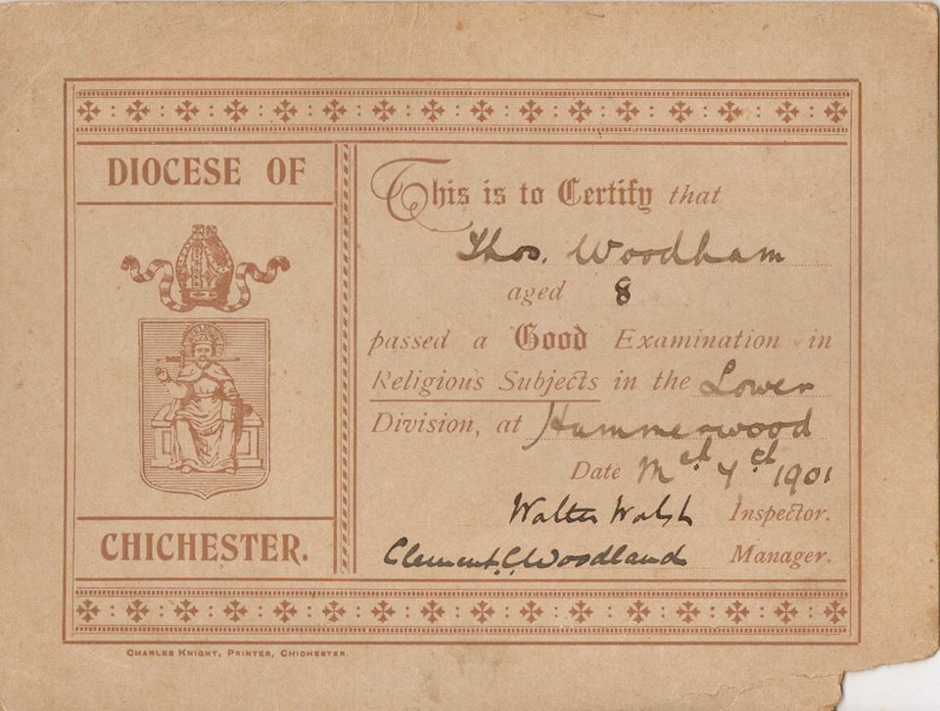 DIOCESE OF
CHICHESTER.
This is to Certify that
Thos. Woodham
aged 8
passed a Good Examination in
Religious Subjects in the Lower
Division, at Hammerwood
Date Mch 4th 1901
Walter Walsh Inspector.
Clement C Woodland Manager.
CHARLES KNIGHT, PRINTER, CHICHESTER.